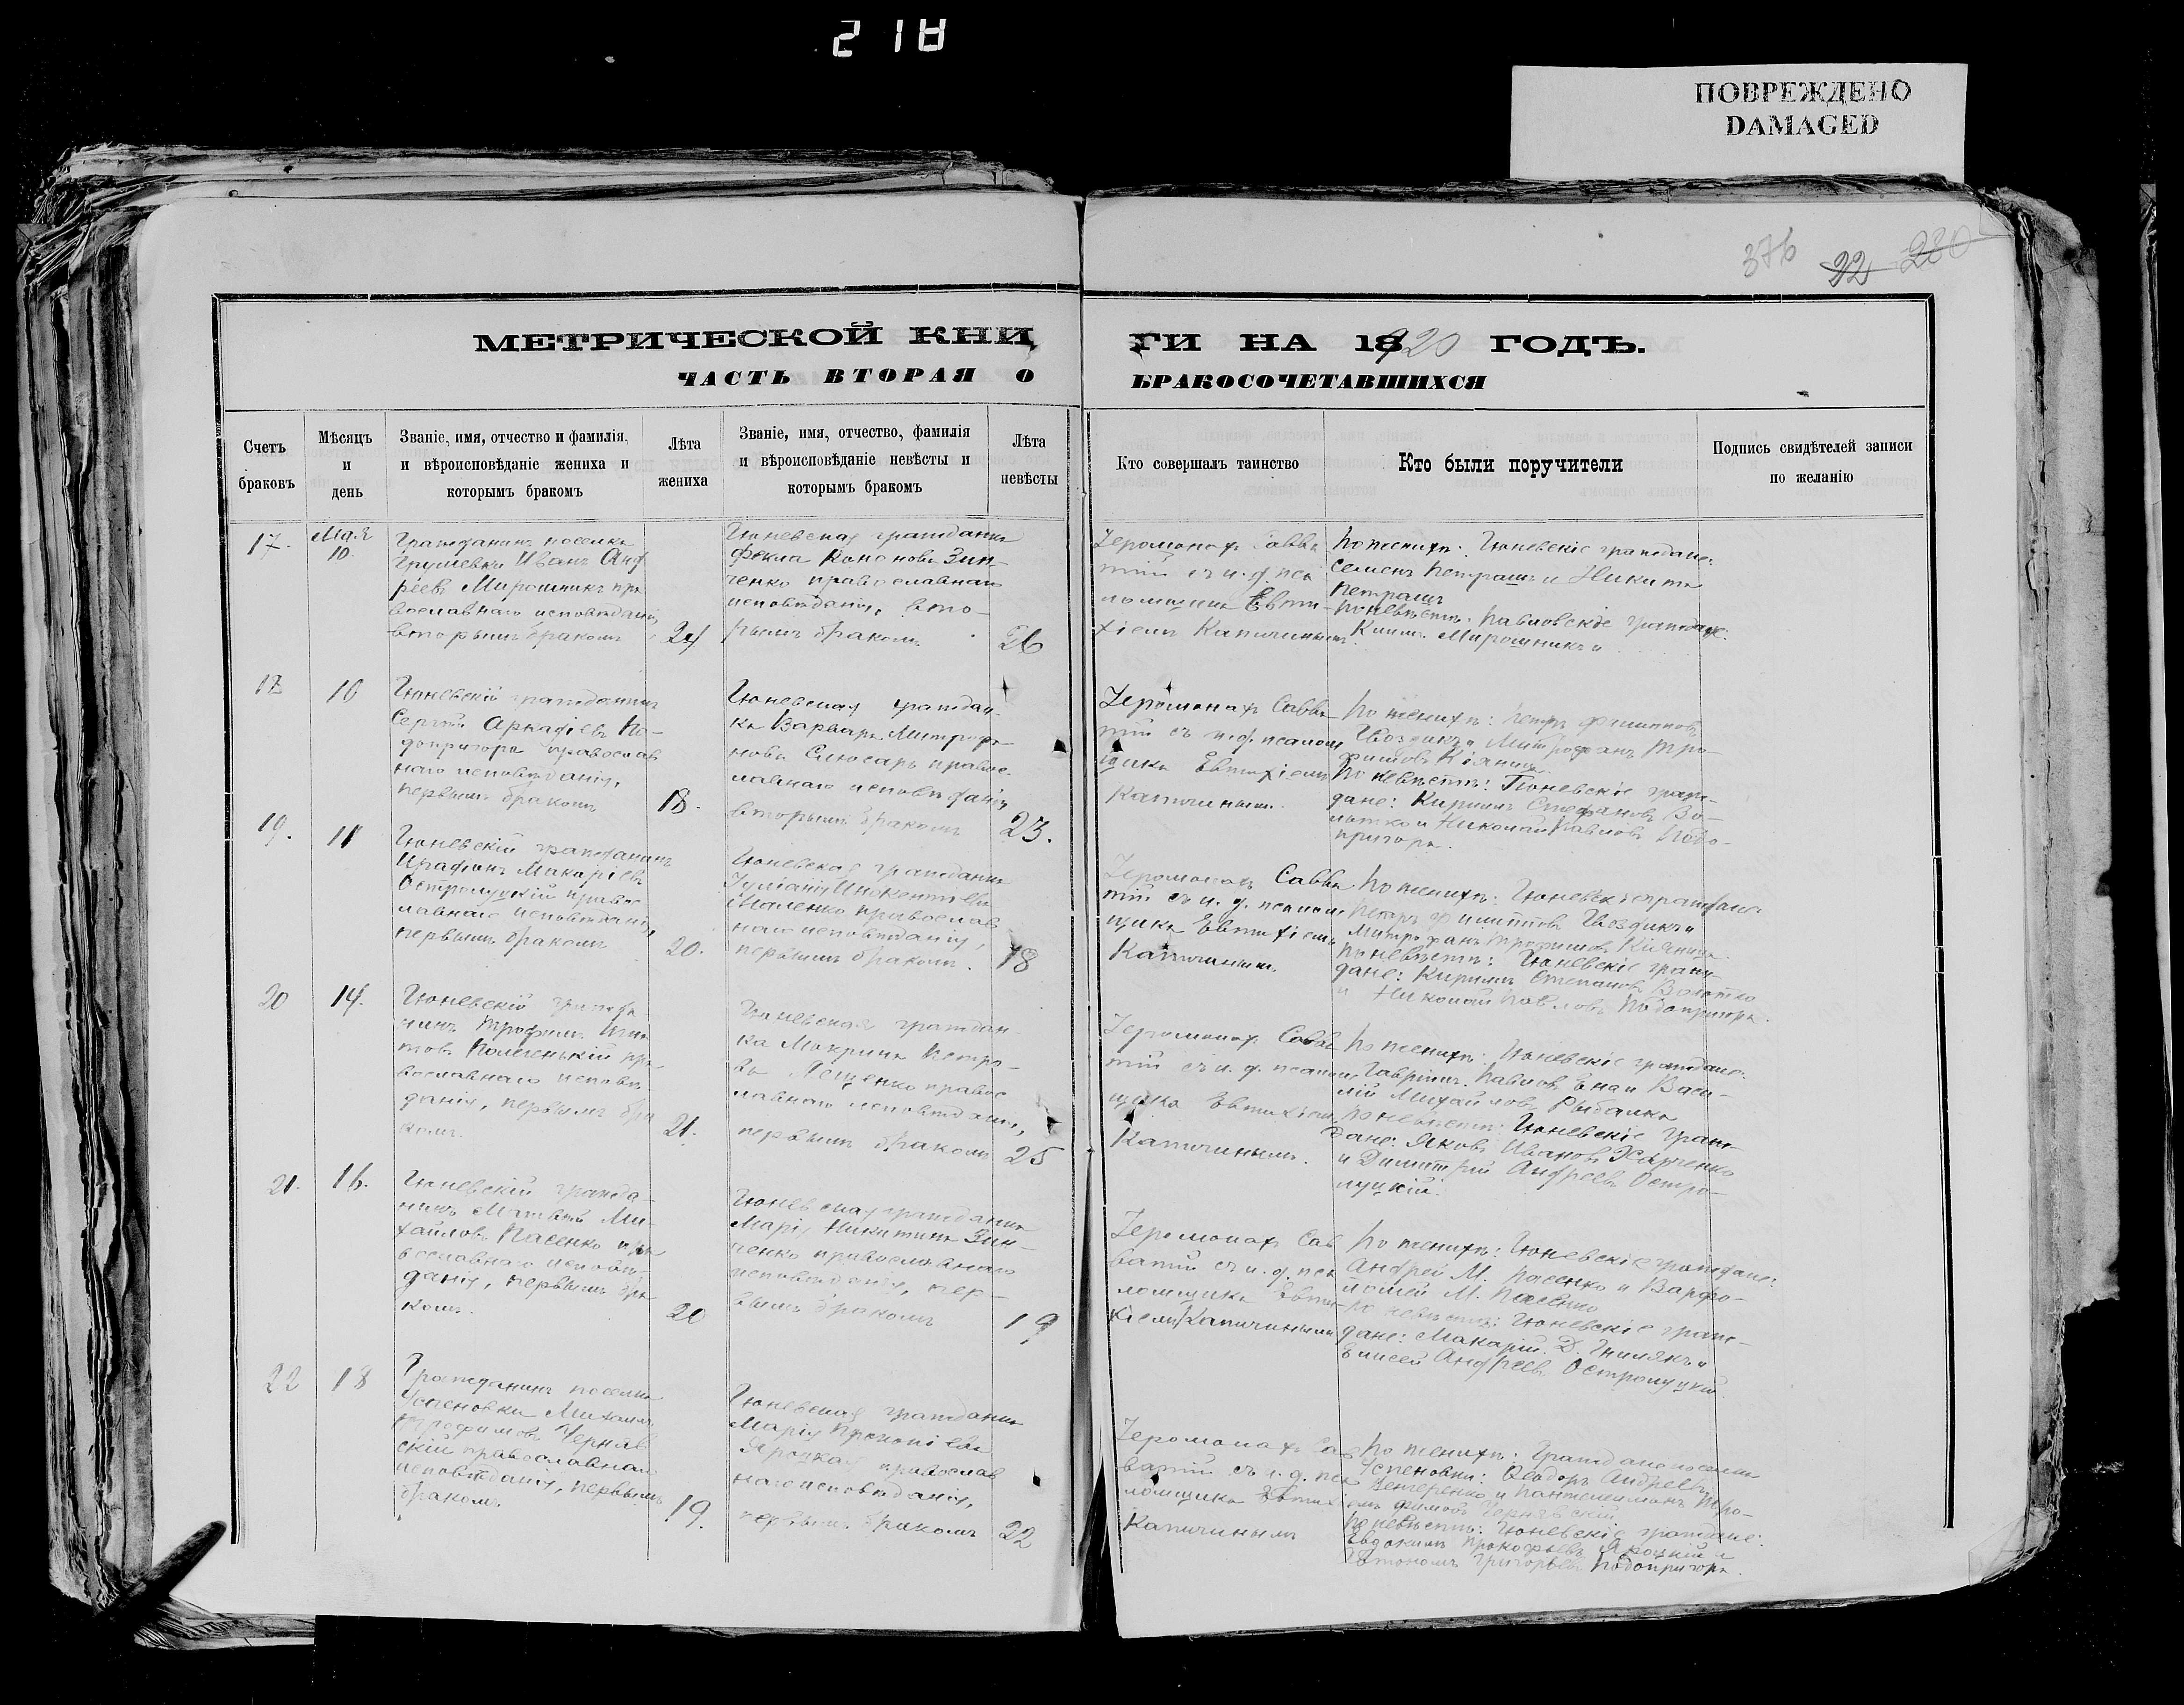 218
ПОВРЕЖДЕНО
DAMAGED
376 22 280
МЕТРИЧЕСКОЙ КНИ
ГИ НА 1920 ГОДЪ.
ЧАСТЬ ВТОРАЯ О
БРАКОСОЧЕТАВШИХСЯ
Счетъ
браковъ
Мѣсяцъ
и
день
Званіе, имя, отчество и фамилія,
и вѣроисповѣданіе жениха и
которымъ бракомъ
Лѣта
жениха
Званіе, имя, отчество, фамилія
и вѣроисповѣданіе невѣсты и
которымъ бракомъ
Лѣта
невѣсты
Кто совершалъ таинство
Кто были поручители
Подпись свидѣтелей записи
по желанію
17.
Мая
10.
Гражданинъ поселка
Грушевки Иванъ Анд
реевъ Мирошникъ пра
вославнаго исповѣданія,
вторымъ бракомъ
24
Гюневская гражданка
Фекла Кононова Зин-
ченко православнаго
исповѣданія, вто-
рымъ бракомъ
26
Іеромонахъ Савва
тій съ и. д. пса
ломщика Евти
хіемъ Капичинымъ.
По женихѣ: Гюневскіе граждане:
Семенъ Петрашъ и Никита
Петрашъ
По невѣстѣ: Павловскіе граждане:
Мирошникъ и
18
10
Гюневскій гражданинъ
Сергій Аркадіевъ По-
допригора православ
наго исповѣданія,
первымъ бракомъ
18.
Гюневская граждан-
ка Варвара Митрофа-
нова Слюсарь правос-
лавнаго исповѣданія
вторымъ бракомъ
23.
Іеромонахъ Савва
тій съ и. д. псалом
щика Евтихіемъ
Капичинымъ.
По женихѣ: Петръ Филипповъ
Гвоздикъ и Митрофанъ Тро-
фимовъ Кіяница.
По невѣстѣ: Гюневскіе граж-
дане: Кириллъ Стефановъ Во-
лотко и Николай Павловъ Подо-
пригора.
19.
11
Гюневскій гражданинъ
Макаріевъ
Остролуцкій правос
лавнаго исповѣданія,
первымъ бракомъ
20.
Гюневская гражданка
Іуліанія Инокентіева
православ
наго исповѣданія,
первымъ бракомъ.
18
Іеромонахъ Савва
тій съ и. д. псалом
щика Евтихіемъ
Капичинымъ.
По женихѣ: Гюневскіе граждане:
Петръ Филипповъ Гвоздикъ и
Митрофанъ Трофимовъ Кіяница.
По невѣстѣ: Гюневскіе граж-
дане: Кириллъ Степановъ Волотко
и Николай Павловъ Подопригора.
20
14.
Гюневскій гражда
нинъ Трофимъ Игна
товъ пра
вославнаго исповѣ
данія, первымъ бра
комъ.
21.
Гюневская граждан-
ка Макрина Петро-
ва Лещенко правос
лавнаго исповѣданія,
первымъ бракомъ
25
Іеромонахъ Савва
тій съ и. д. псалом
щика Евтихіемъ
Капичинымъ.
По женихѣ: Гюневскіе граждане:
Гавріилъ Павловъ Ена и Васи-
лій Михайловъ Рыбалка
По невѣстѣ: Гюневскіе граж
дане: Яковъ Ивановъ Харченко
и Димитрій Андреевъ Остро-
луцкій.
21.
16.
Гюневскій гражда-
нинъ Матвей Ми-
хайловъ Пасенко пра
вославнаго исповѣ-
данія, первымъ бра
комъ.
20
Гюневская гражданка
Марія Никитина Зин-
ченко православнаго
исповѣданія, пер-
вымъ бракомъ
19
Іеромонахъ Сав
ватій съ и. д. пса
ломщика Евти-
хіемъ Капичинымъ
По женихѣ: Гюневскіе граждане:
Андрей М. Пасенко и Варфо-
ломей М. Пасенко
По невѣстѣ: Гюневскіе граж-
дане: Макарій Д. Гнилякъ и
Елисей Андреевъ Остролуцкій.
22
18
Гражданинъ поселка
Успеновки Михаилъ
Трофимовъ Черняв
скій православнаго
исповѣданія, первымъ
бракомъ.
19.
Гюневская гражданка
Марія Прокопіева
Яроцкая православ
наго исповѣданія,
первымъ бракомъ
22
Іеромонахъ Сав
ватій съ и. д. пса
ломщика Евтихі
емъ
Капичинымъ
По женихѣ: Граждане поселка
Успеновки: Ѳеодоръ Андреевъ
и Пантелеимонъ Тро-
фимовъ Чернявскій
По невѣстѣ: Гюневскіе граждане:
Евдокимъ Прокофьевъ Яроцкій и
Автономъ Григорьевъ Подопригора.